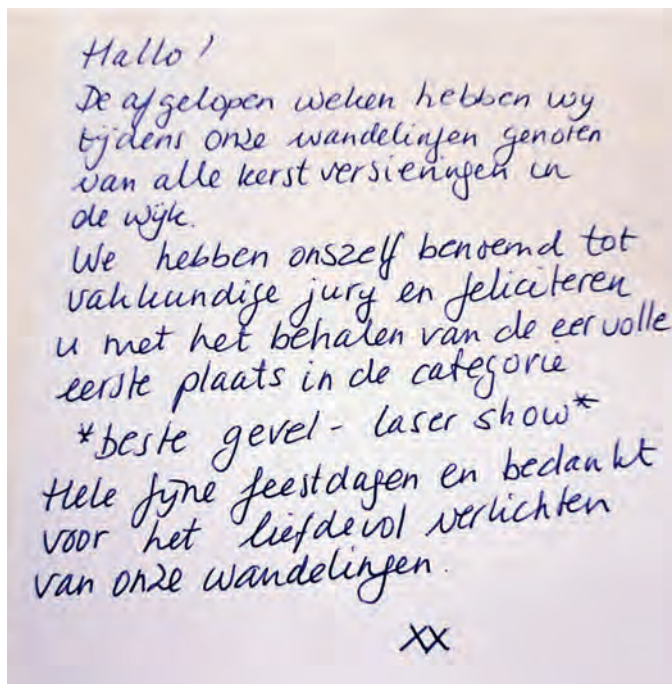 Hallo!
De afgelopen weken hebben wij
tijdens onze wandelingen genoten
van alle kerstversieringen in
de wijk.
We hebben onszelf benoemd tot
vakkundige jury en feliciteren
u met het behalen van de eervolle
eerste plaats in de categorie
*beste gevel - laser show*
Hele fijne feestdagen en bedankt
voor het liefdevol verlichten
van onze wandelingen.
XX